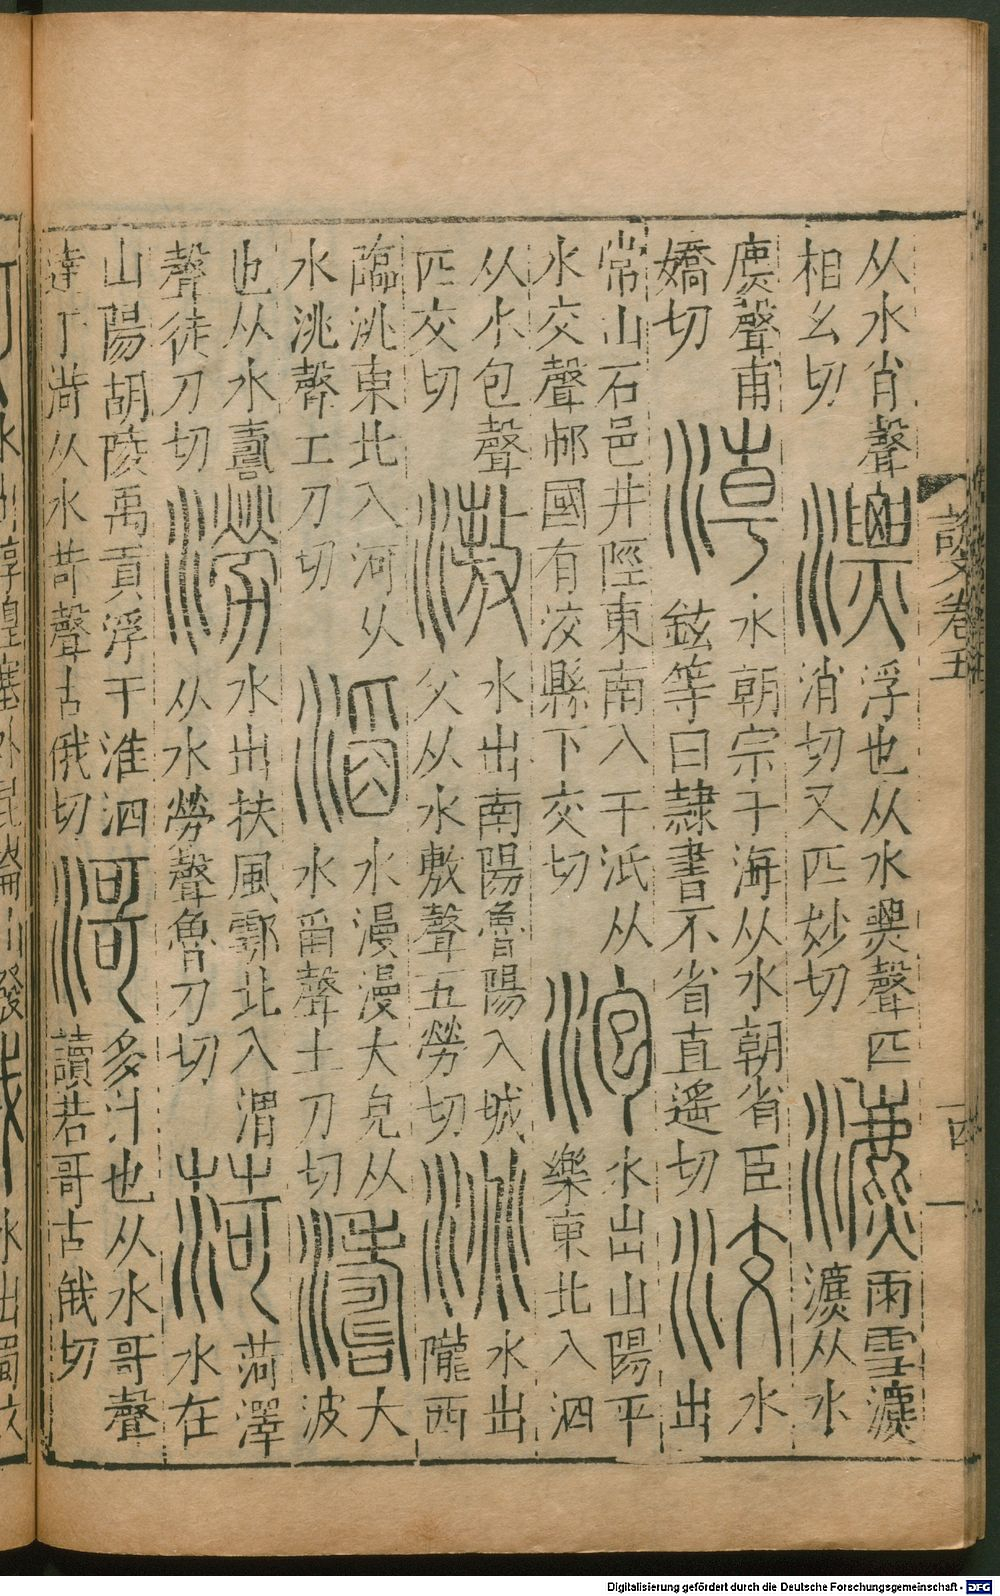 从水肖聲
相幺切
漂
浮也从水㶾聲匹
消切又匹妙切
瀌
雨雪瀌
瀌从水
麃聲甫
嬌切
淖
水朝宗于海从水朝省臣
鉉等曰隷書不省直遙切
洨
水
出
常山石邑井陘東南入于泜从
水交聲䢴國有洨縣下交切
泡
水出山陽平
樂東北入泗
从水包聲
匹交切
滶
水出南陽魯陽入城
父从水敷聲五勞切
洮
水出
隴西
臨洮東北入河从
水洮聲工刀切
滔
水漫漫大皃从
水舀聲土刀切
濤
大
波
也从水壽
聲徒刀切
澇
水出扶風鄠北入渭
从水勞聲魯刀切
菏
菏澤
水在
山陽胡陵禹貢浮于淮泗
達于菏从水苛聲古俄切
滒
多汁也从水哥聲
讀若哥古俄切
説文卷五
Digitalisierung gefördert durch die Deutsche Forschungsgemeinschaft - DFG